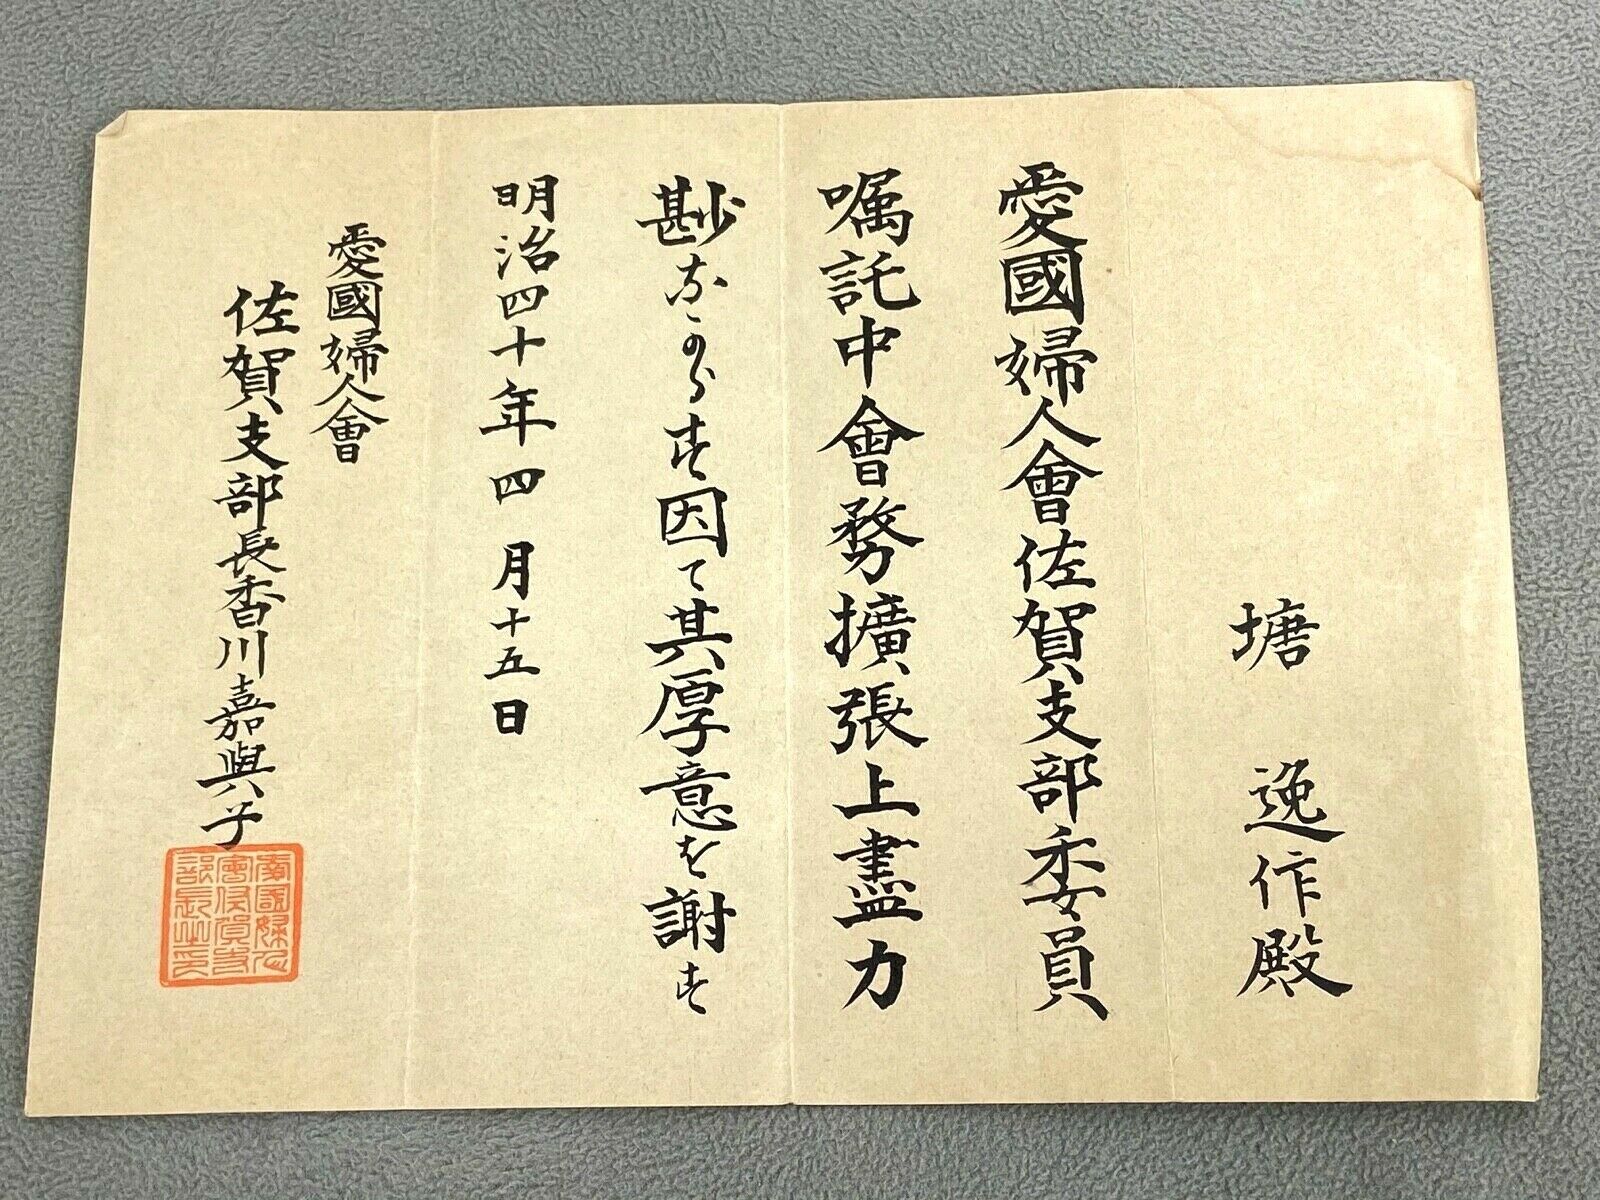 塘 逸作殿
愛國婦人會佐賀支部委員
嘱託中會務擴張上盡力
尠なからす因て其厚意を謝す
明治四十年四月十五日
愛國婦人會
佐賀支部長香川嘉與子
愛國婦人
會佐賀支
部長之印